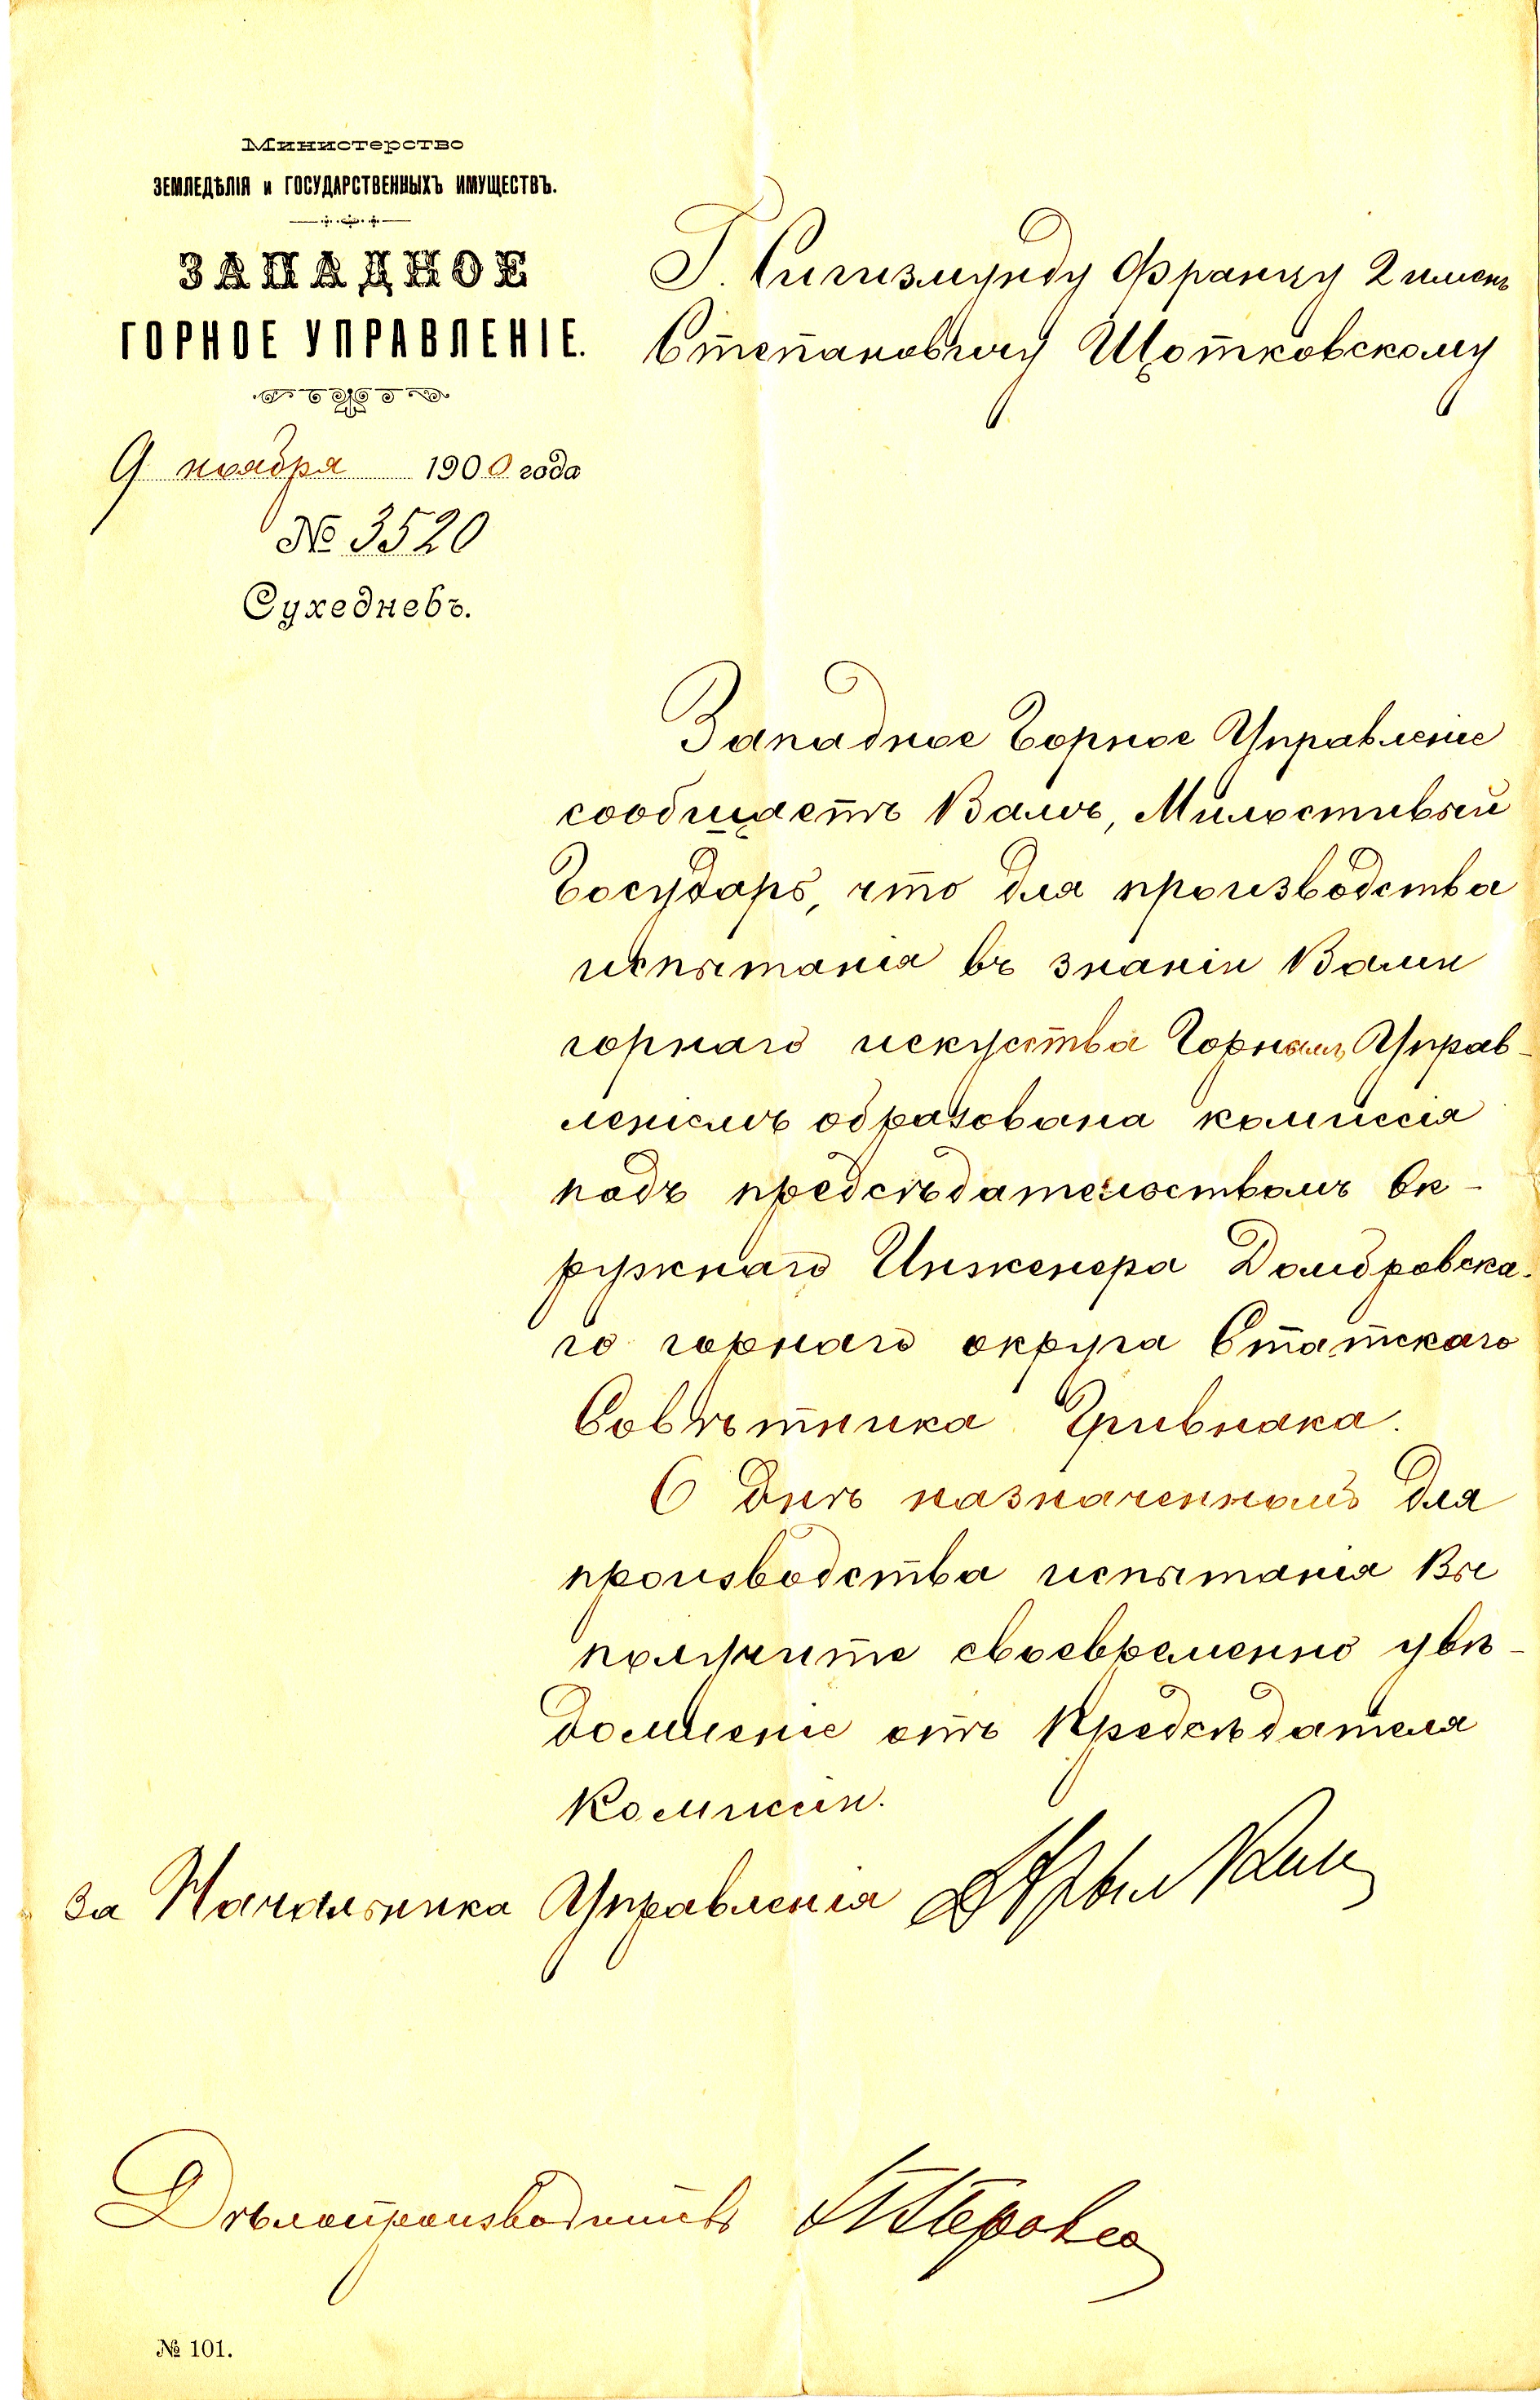 Министерство
ЗЕМЛЕДѢЛІЯ и ГОСУДАРСТВЕННЫХЪ ИМУЩЕСТВЪ.
ЗАПАДНОЕ
ГОРНОЕ УПРАВЛЕНІЕ.
9 ноября 1900 года
№ 3520
Сухедневъ.
Г. Сигизмунду Францу 2 именъ
Степановичу Щотковскому
Западное Горное Управленіе
сообщаетъ Вамъ, Милостивый
Государь, что для производства
испытанія въ знаніи Вами
горнаго искуства Горнымъ Управ-
леніемъ образована комиссія
подъ предсѣдательствомъ Ок-
ружнаго Инженера Домбровска-
го горнаго округа Статскаго
Совѣтника Гривнака.
О днѣ назначенномъ для
производства испытанія Вы
получите своевременно увѣ-
домленіе отъ Предсѣдателя
Комиссіи.
За Начальника Управленія
Дѣлопроизводитель
№ 101.